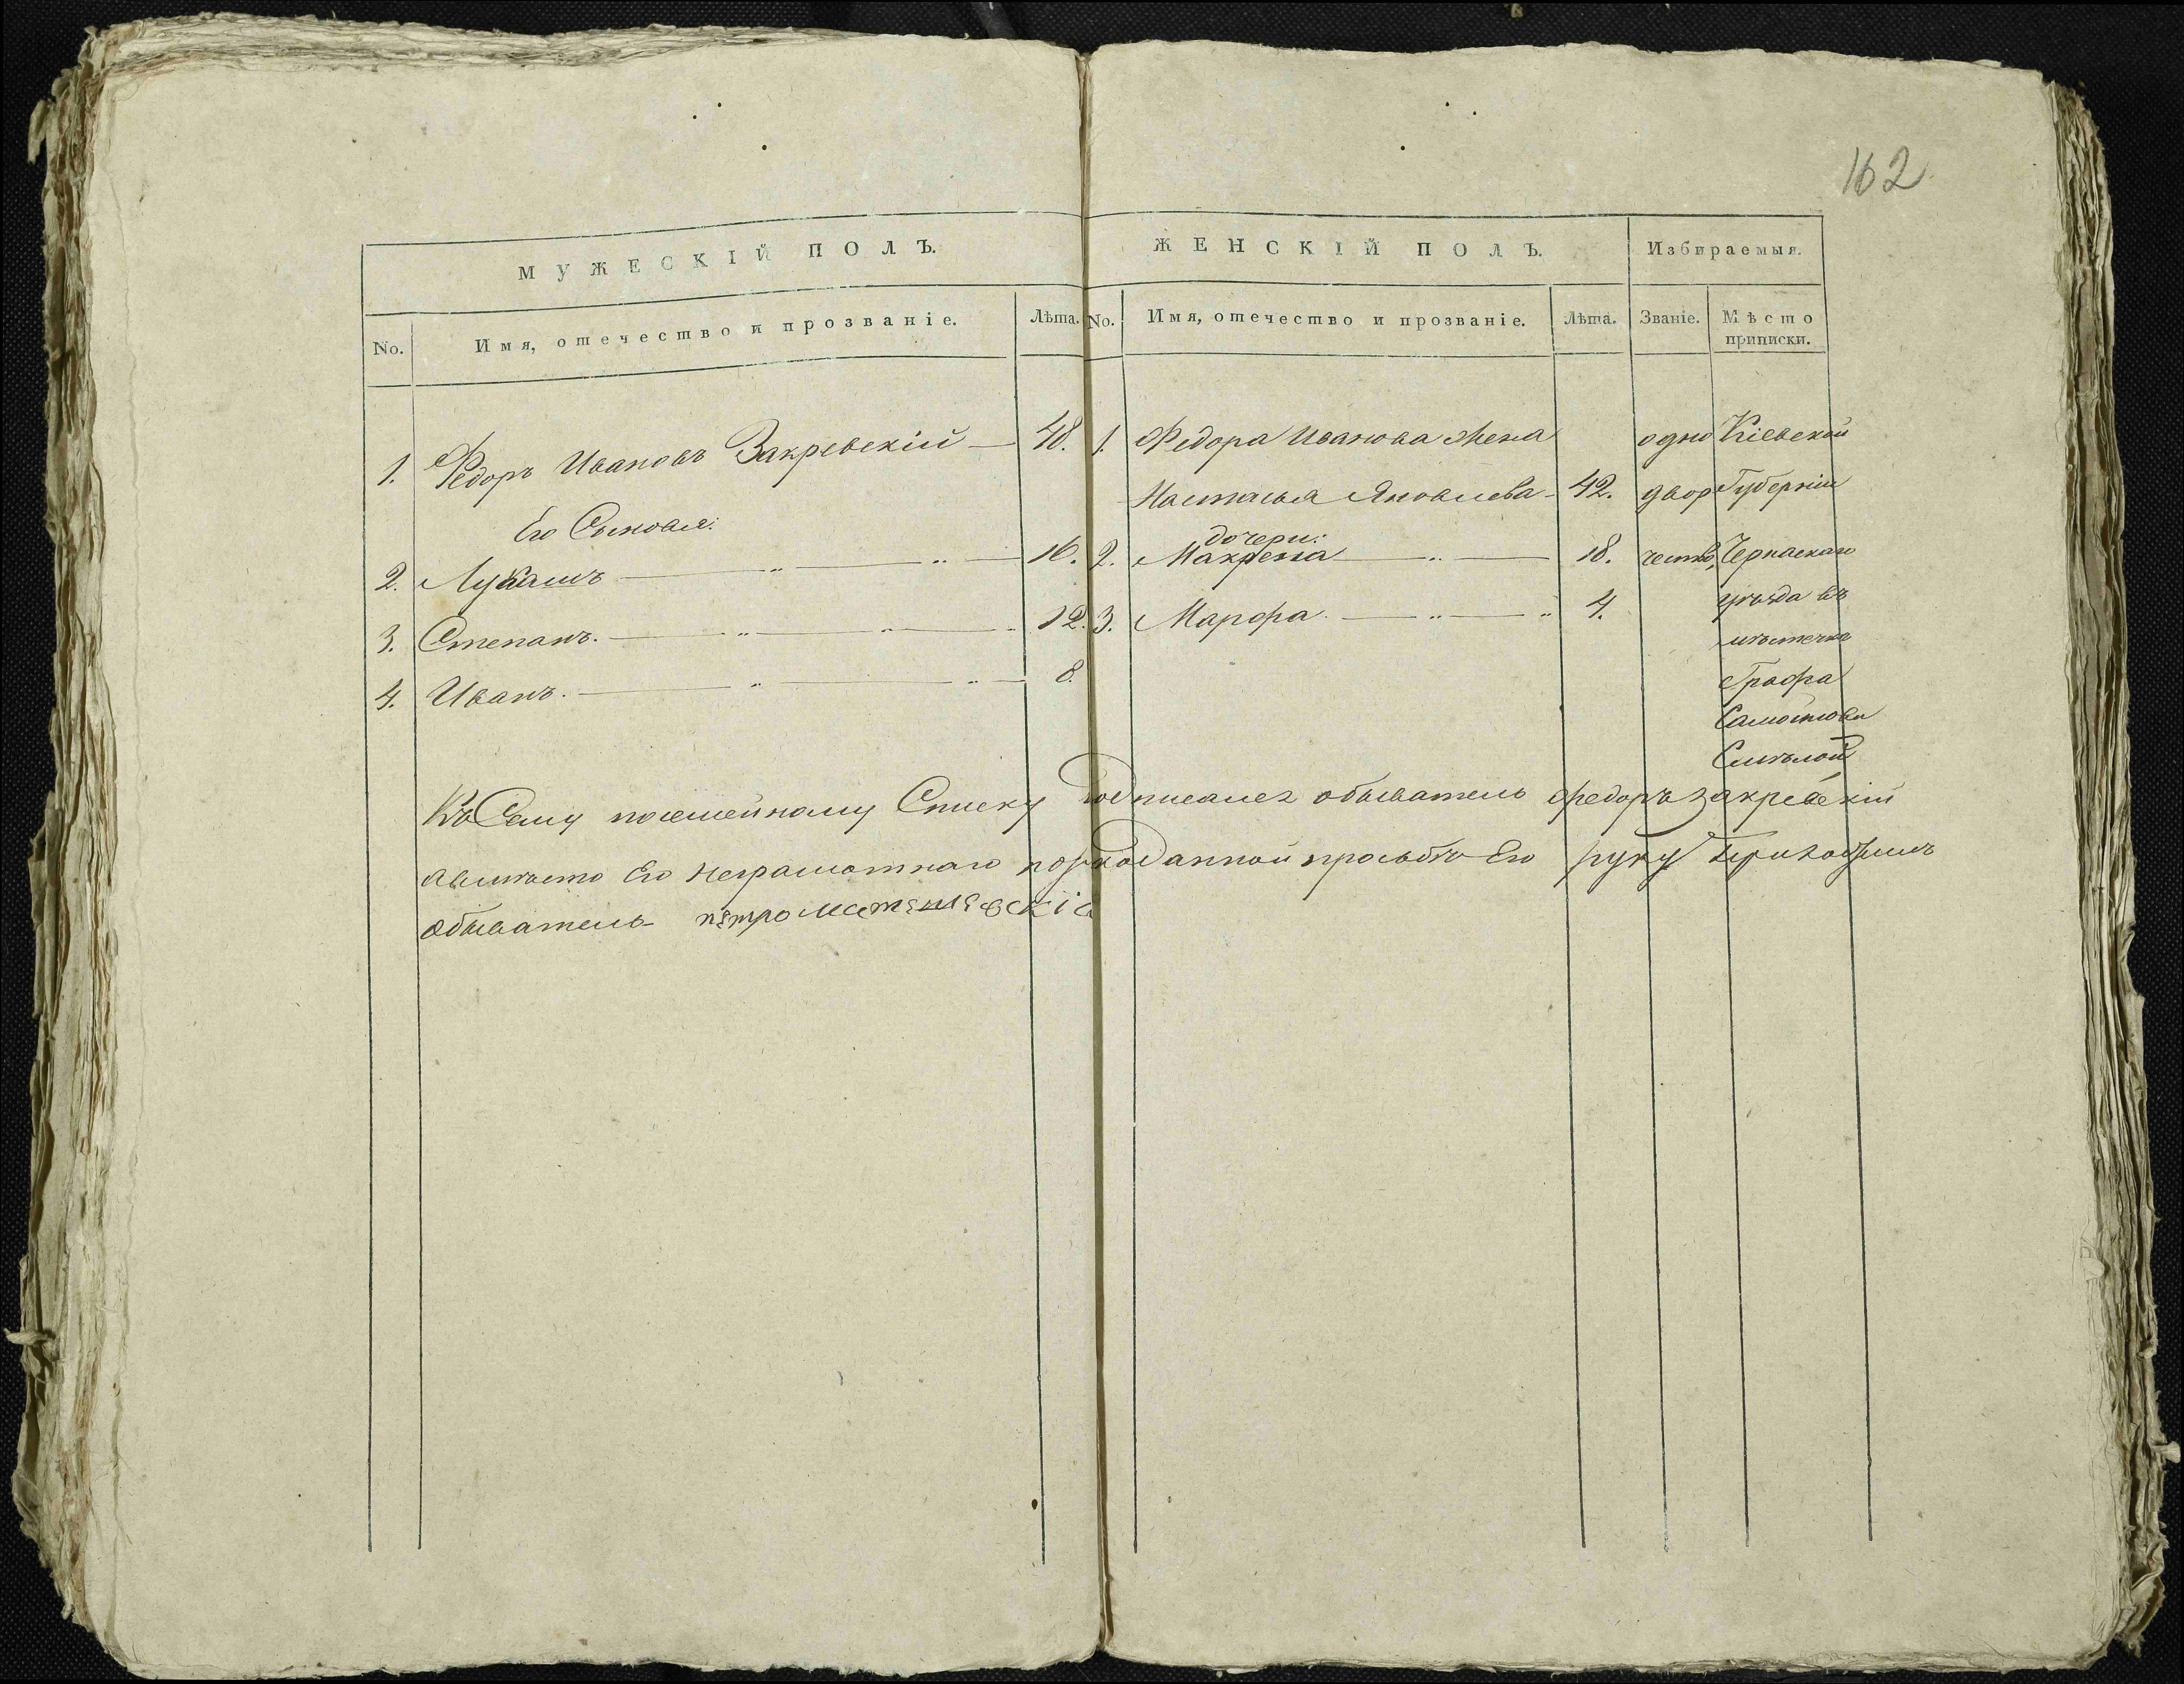 162
МУЖЕСКІЙ ПОЛЪ.
No. Имя, отечество и прозваніе. Лѣта.
1. Федоръ Ивановъ Закревскій — 48.
Его Сыновья:
2. Лукашъ — „ — „ — 16.
3. Степанъ. — „ — „ — 12.
4. Иванъ. — „ — „ — 8.
ЖЕНСКІЙ ПОЛЪ. Избираемыя.
No. Имя, отечество и прозваніе. Лѣта. Званіе. Мѣсто
приписки.
1. Федора Иванова жена одно Кіевской
Настасья Яковлева - 42. двор Губерніи
дочери:
2. Макрена — „ — 18. чество, Черкаскаго
3. Марфа. — „ — „ 4. уѣзда въ
мѣстечке
Графа
Самойлова
Смѣлой
Къ Сему посемейному Списку подписался обыватель Федоръ Закревскій
авмѣсто Его неграмотнаго поданной прозьбѣ Его руку
обыватель петро